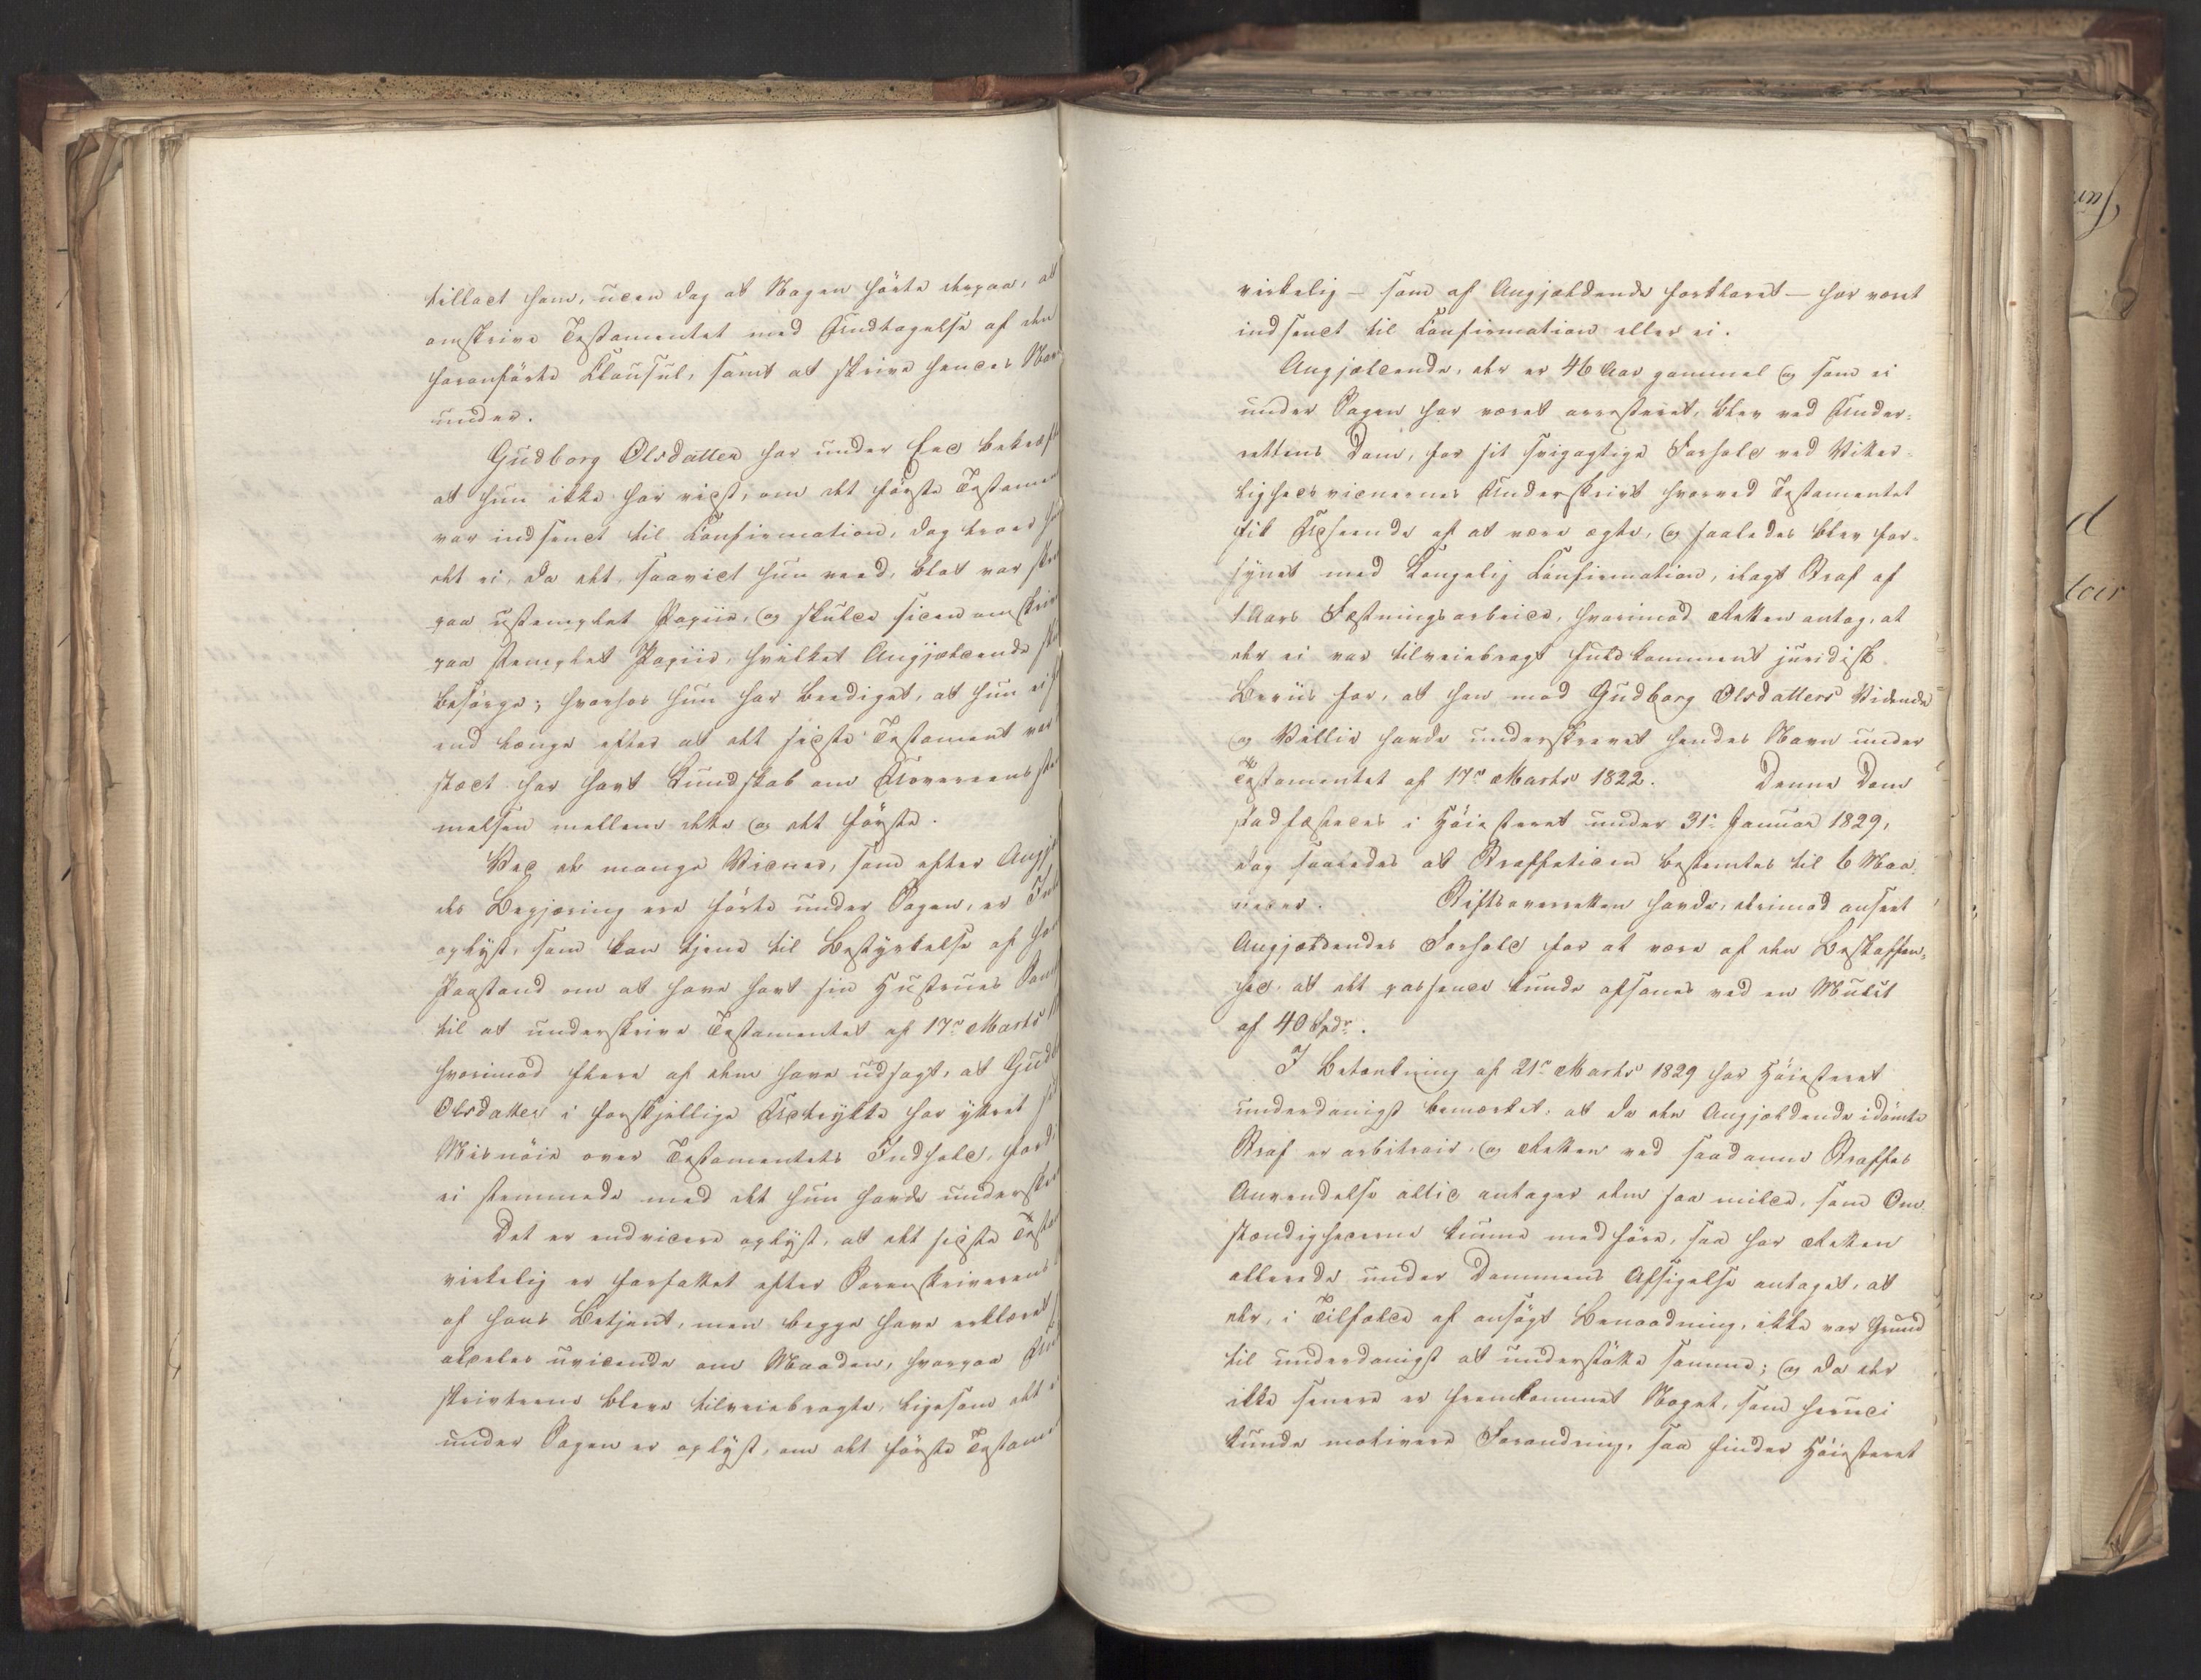 tilladt ham, uden dog at Nogen hørte derpaa, at
omskrive Testamentet med Undtagelse af den
foranførte Clausul, samt at skrive hendes Nav
under.
Gudborg Olsdatter har under Eed bekræft
at hun ikke har vidst, om det første Testamen
var indsendt til Confirmation, dog troer hu
det ei, da det, saavidt hun veed, blot var skre
paa ustemplet Papiir, og skulde siden omskriv
paa stemplet Papiir, hvilket Angjældende sk
besørge; hvorhos hun har beediget, at hun ei f
end længe efter at det sidste Testament var
stædt har havt Kundskab om Uovereenste
melsen mellem dette og det første.
Ved de mange Vidner, som efter Angjæ
des Begjæring ere førte under Sagen, er Int
oplyst, som kan tjene til Bestyrkelse af ha
Paastand om at have havt sin Hustrues Sam
til at underskrive Testamentet af 17de Marts
hvorimod flere af dem have udsagt, at Gudb
Olsdatter i forskjellige Udtrykke har yttret si
Misnøie over Testamentets Indhold, fordi
ei stemmede med det hun havde underskre
Det er endvidere oplyst, at det sidste Testa
virkelig er forfattet efter Sorenskriverens
af hans Betjent, men begge have erklæret
aldeles uvidende om Maaden, hvorpaa Un
skrivterne bleve tilveiebragte, ligesom det ei
under Sagen er oplyst, om det første Testame
virkelig – som af Angjældende forklaret – har været
indsendt til Confirmation eller ei.
Angjældende, der er 46 Aar gammel og som ei
under Sagen har været arresteret, blev ved Under-
rettens Dom, for sit svigagtige Forhold ved Vitter-
lighedsvidnernes Underskrivt hvorved Testamentet
fik Udseende af at være ægte, og saaledes blev for-
synet med Kongelig Confirmation, ilagt Straf af
1 Aars Fæstningsarbeide, hvorimod Retten antog, at
der ei var tilveiebragt fuldkomment juridisk
Beviis for, at han mod Gudborg Olsdatters Vidende
og Villie havde underskrevet hendes Navn under
Testamentet af 17de Marts 1822. Denne Dom
stadfæstedes i Høiesteret under 31te Januar 1829,
dog saaledes at Straffetiden bestemtes til 6 Maa-
neder. Stiftsoverretten havde, derimod anseet
Angjældendes Forhold for at være af den Beskaffen-
hed, at det passende kunde afsones ved en Mulct
af 40 Spdr.
I Betænkning af 21de Marts 1829 har Høiesteret
underdanigst bemærket, at da den Angjældende idømte
Straf er arbitrair, og Retten ved saadanne Straffes
Anvendelse altid antager dem saa milde, som Om-
stændighederne kunne medføre, saa har Retten
allerede under Dommens Afsigelse antaget, at
der, i Tilfælde af ansøgt Benaadning, ikke var Grund
til underdanigst at understøtte samme; og da der
ikke senere er fremkommet Noget, som herudi
kunde motivere Forandring, saa finder Høiesteret